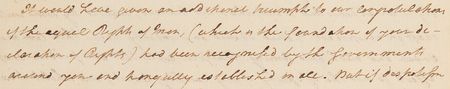 It would have given an additional triumph to our congratulations
if the equal Rights of Man, (which is the foundation of your de-
claration of Rights) had been recognized by the Governments
around you and tranquilly established in all. But if despotism